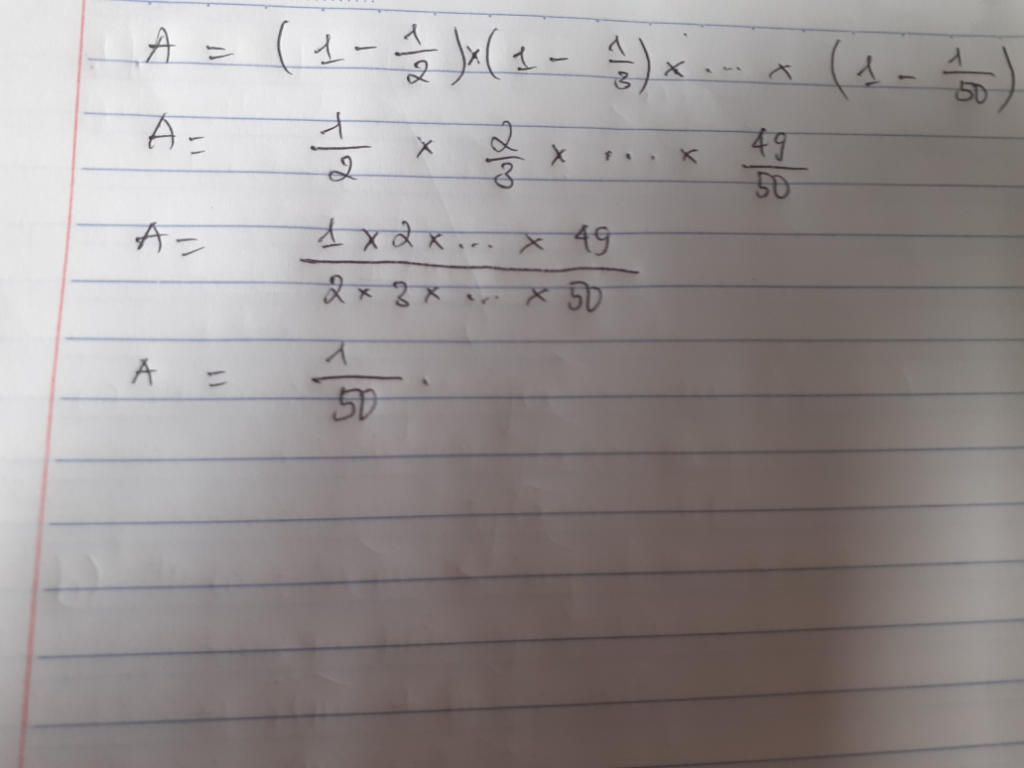 A = (1 - 1/2)×(1 - 1/3)× ... × (1 - 1/50)
A = 1/2 × 2/3 × .... × 49/50
A = 1 × 2 × ... × 49 / 2 × 3 × ... × 50
A = 1/50 .